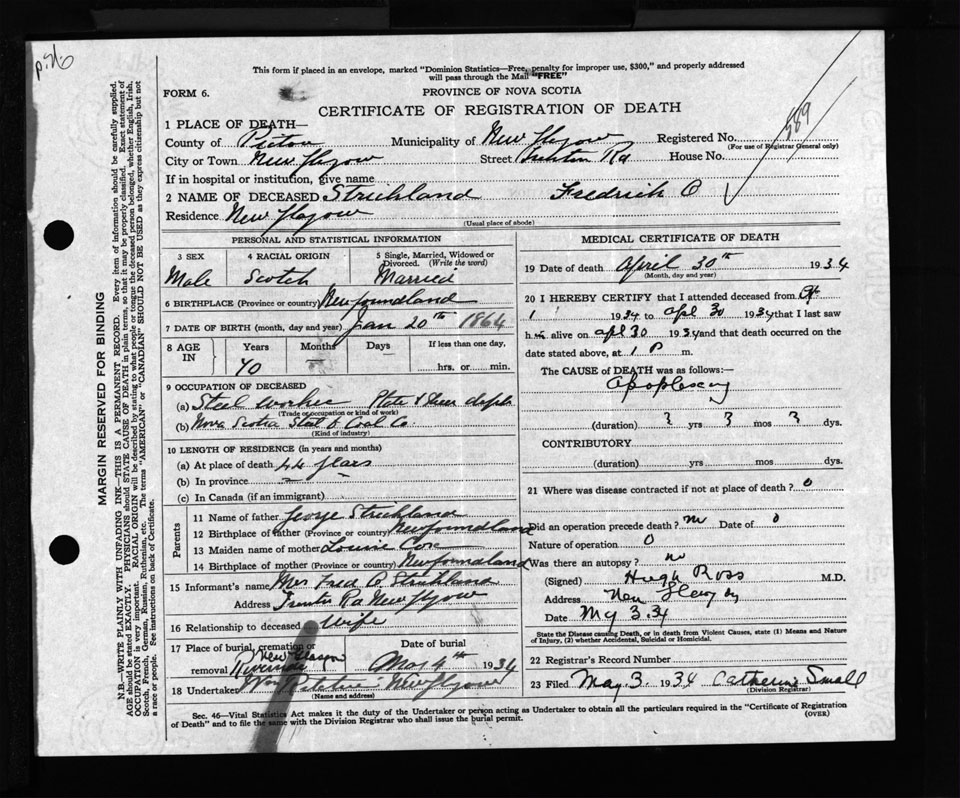 p. 26
This form if placed in an envelope, marked "Dominion Statistics—Free, penalty for improper use, $300," and properly addressed
will pass through the Mail "FREE"
FORM 6.
PROVINCE OF NOVA SCOTIA
CERTIFICATE OF REGISTRATION OF DEATH
589
1 PLACE OF DEATH—
County of Pictou Municipality of New Glasgow Registered No.
(For use of Registrar General only)
City or Town New Glasgow Street Trenton Rd House No.
If in hospital or institution, give name
2 NAME OF DECEASED Strickland Fredrick O
Residence New Glasgow
(Usual place of abode)
PERSONAL AND STATISTICAL INFORMATION
3 SEX 4 RACIAL ORIGIN 5 Single, Married, Widowed or Divorced. (Write the word)
Male Scotch Married
6 BIRTHPLACE (Province or country) Newfoundland
7 DATE OF BIRTH (month, day and year) Jan 20th 1864
8 AGE IN Years Months Days If less than one day,
70 hrs. or min.
9 OCCUPATION OF DECEASED
(a) Steel worker Plate & Shear dept
(Trade occupation or kind of work)
(b) Nova Scotia Steel & Coal Co.
(Kind of industry)
10 LENGTH OF RESIDENCE (in years and months)
(a) At place of death 44 years
(b) In province
(c) In Canada (if an immigrant)
Parents
11 Name of father George Strickland
12 Birthplace of father (Province or country) Newfoundland
13 Maiden name of mother Louise Cox
14 Birthplace of mother (Province or country) Newfoundland
15 Informant's name Mrs Fred O. Strickland
Address Trenton Rd New Glasgow
16 Relationship to deceased Wife
17 Place of burial, cremation or removal Date of burial
New Glasgow
Riverside May 4th 1934
18 Undertaker Wm Ritchie New Glasgow
(Name and address)
MEDICAL CERTIFICATE OF DEATH
19 Date of death April 30th 1934
(Month, day and year)
20 I HEREBY CERTIFY that I attended deceased from Apl
1 1934 to apl 30 1934 that I last saw
him alive on apl 30 1934 and that death occurred on
date stated above, at 1 P m.
The CAUSE of DEATH was as follows:—
Apoplexy
(duration) ? yrs ? mos ? dys.
CONTRIBUTORY
(duration) yrs mos dys.
21 Where was disease contracted if not at place of death? 0
Did an operation precede death? no Date of 0
Nature of operation 0
Was there an autopsy? no
(Signed) Hugh Ross M.D.
Address New Glasgow
Date May 3 34
State the Disease causing Death, or in death from Violent Causes, state (1) Means and Nature
of Injury, (2) whether Accidental, Suicidal or Homicidal.
22 Registrar's Record Number
23 Filed May 3. 1934 Catherine Small
(Division Registrar)
Sec. 46—Vital Statistics Act makes it the duty of the Undertaker or person acting as Undertaker to obtain all the particulars required in the "Certificate of Registration
of Death" and to file the same with the Division Registrar who shall issue the burial permit.
(OVER)
MARGIN RESERVED FOR BINDING
N.B.—WRITE PLAINLY WITH UNFADING INK—THIS IS A PERMANENT RECORD. Every item of information should be carefully supplied.
AGE should be stated EXACTLY. PHYSICIANS should STATE CAUSE OF DEATH in plain terms, so that it may be properly classified. Exact statement of
OCCUPATION is very important. RACIAL ORIGIN will be described by stating to what people or tongue the deceased person belonged, whether English, Irish,
Scotch, French, German, Russian, Ruthenian, etc. The terms "AMERICAN" or "CANADIAN" SHOULD NOT BE USED as they express citizenship but not
a race or people. See instructions on back of Certificate.